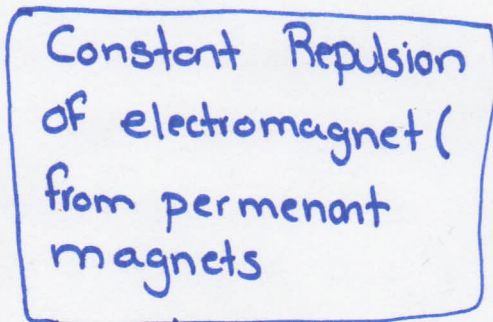 Constant Repulsion
of electromagnet (
from permenant
magnets